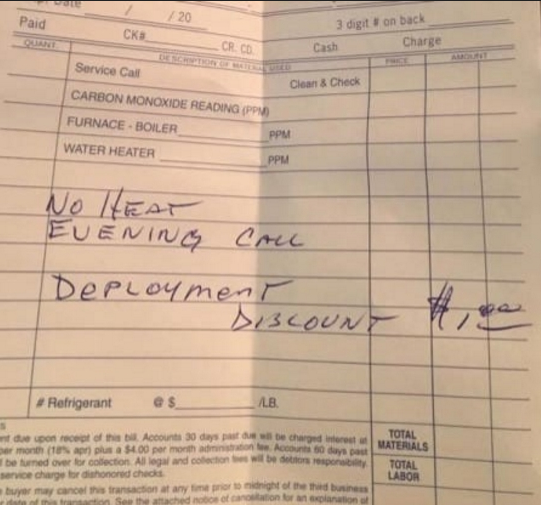 Date / / 20
3 digit # on back
Paid CK# CR. CD. Cash Charge
QUANT. DESCRIPTION OF MATERIAL USED PRICE AMOUNT
Service Call Clean & Check
CARBON MONOXIDE READING (PPM)
FURNACE - BOILER PPM
WATER HEATER PPM
NO HEAT
EVENING CALL
DEPLOYMENT
DISCOUNT $1,00
# Refrigerant @ $ /LB.
due upon receipt of this bill. Accounts 30 days past due will be charged interest at
per month (18% apr) plus a $4.00 per month administration fee. Accounts 60 days past
be turned over for collection. All legal and collection fees will be debtors responsibility.
service charge for dishonored checks.
buyer may cancel this transaction at any time prior to midnight of the third business
date of this transaction. See the attached notice of cancellation for an explanation of
TOTAL
MATERIALS
TOTAL
LABOR